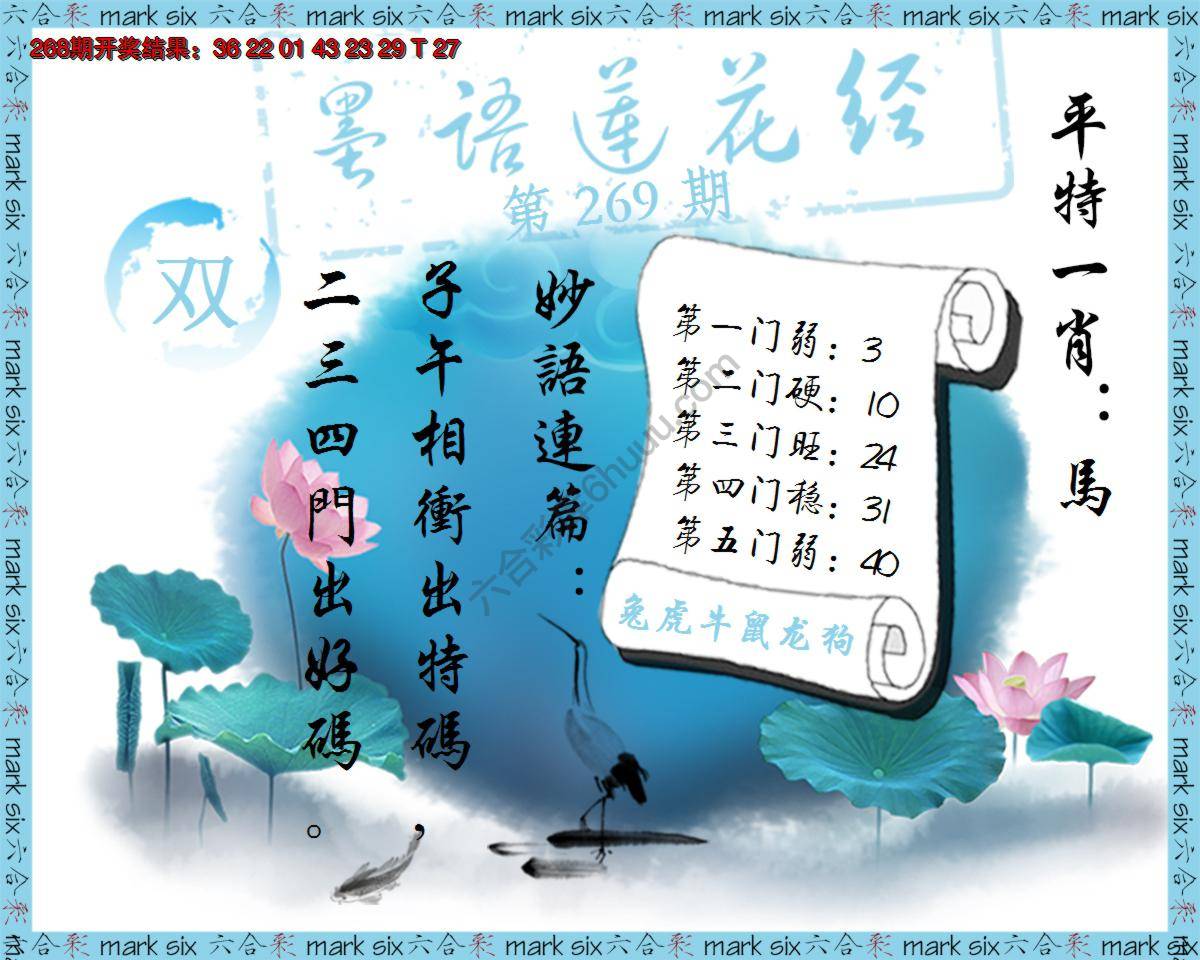 六合彩 mark six 六合彩 mark six 六合彩 mark six 六合彩 mark six 六合彩 mark six 六合彩 mark six
268期开奖结果：36 22 01 43 23 29 T 27
墨語莲花经
第 269 期
双
平特一肖：馬
妙語連篇：
子午相衝出特碼，
二三四門出好碼。
第一门弱：3
第二门硬：10
第三门旺：24
第四门稳：31
第五门弱：40
兔虎牛鼠龙狗
六合彩 mark six 六合彩 mark six 六合彩 mark six 六合彩 mark six 六合彩 mark six 六合彩 mark six